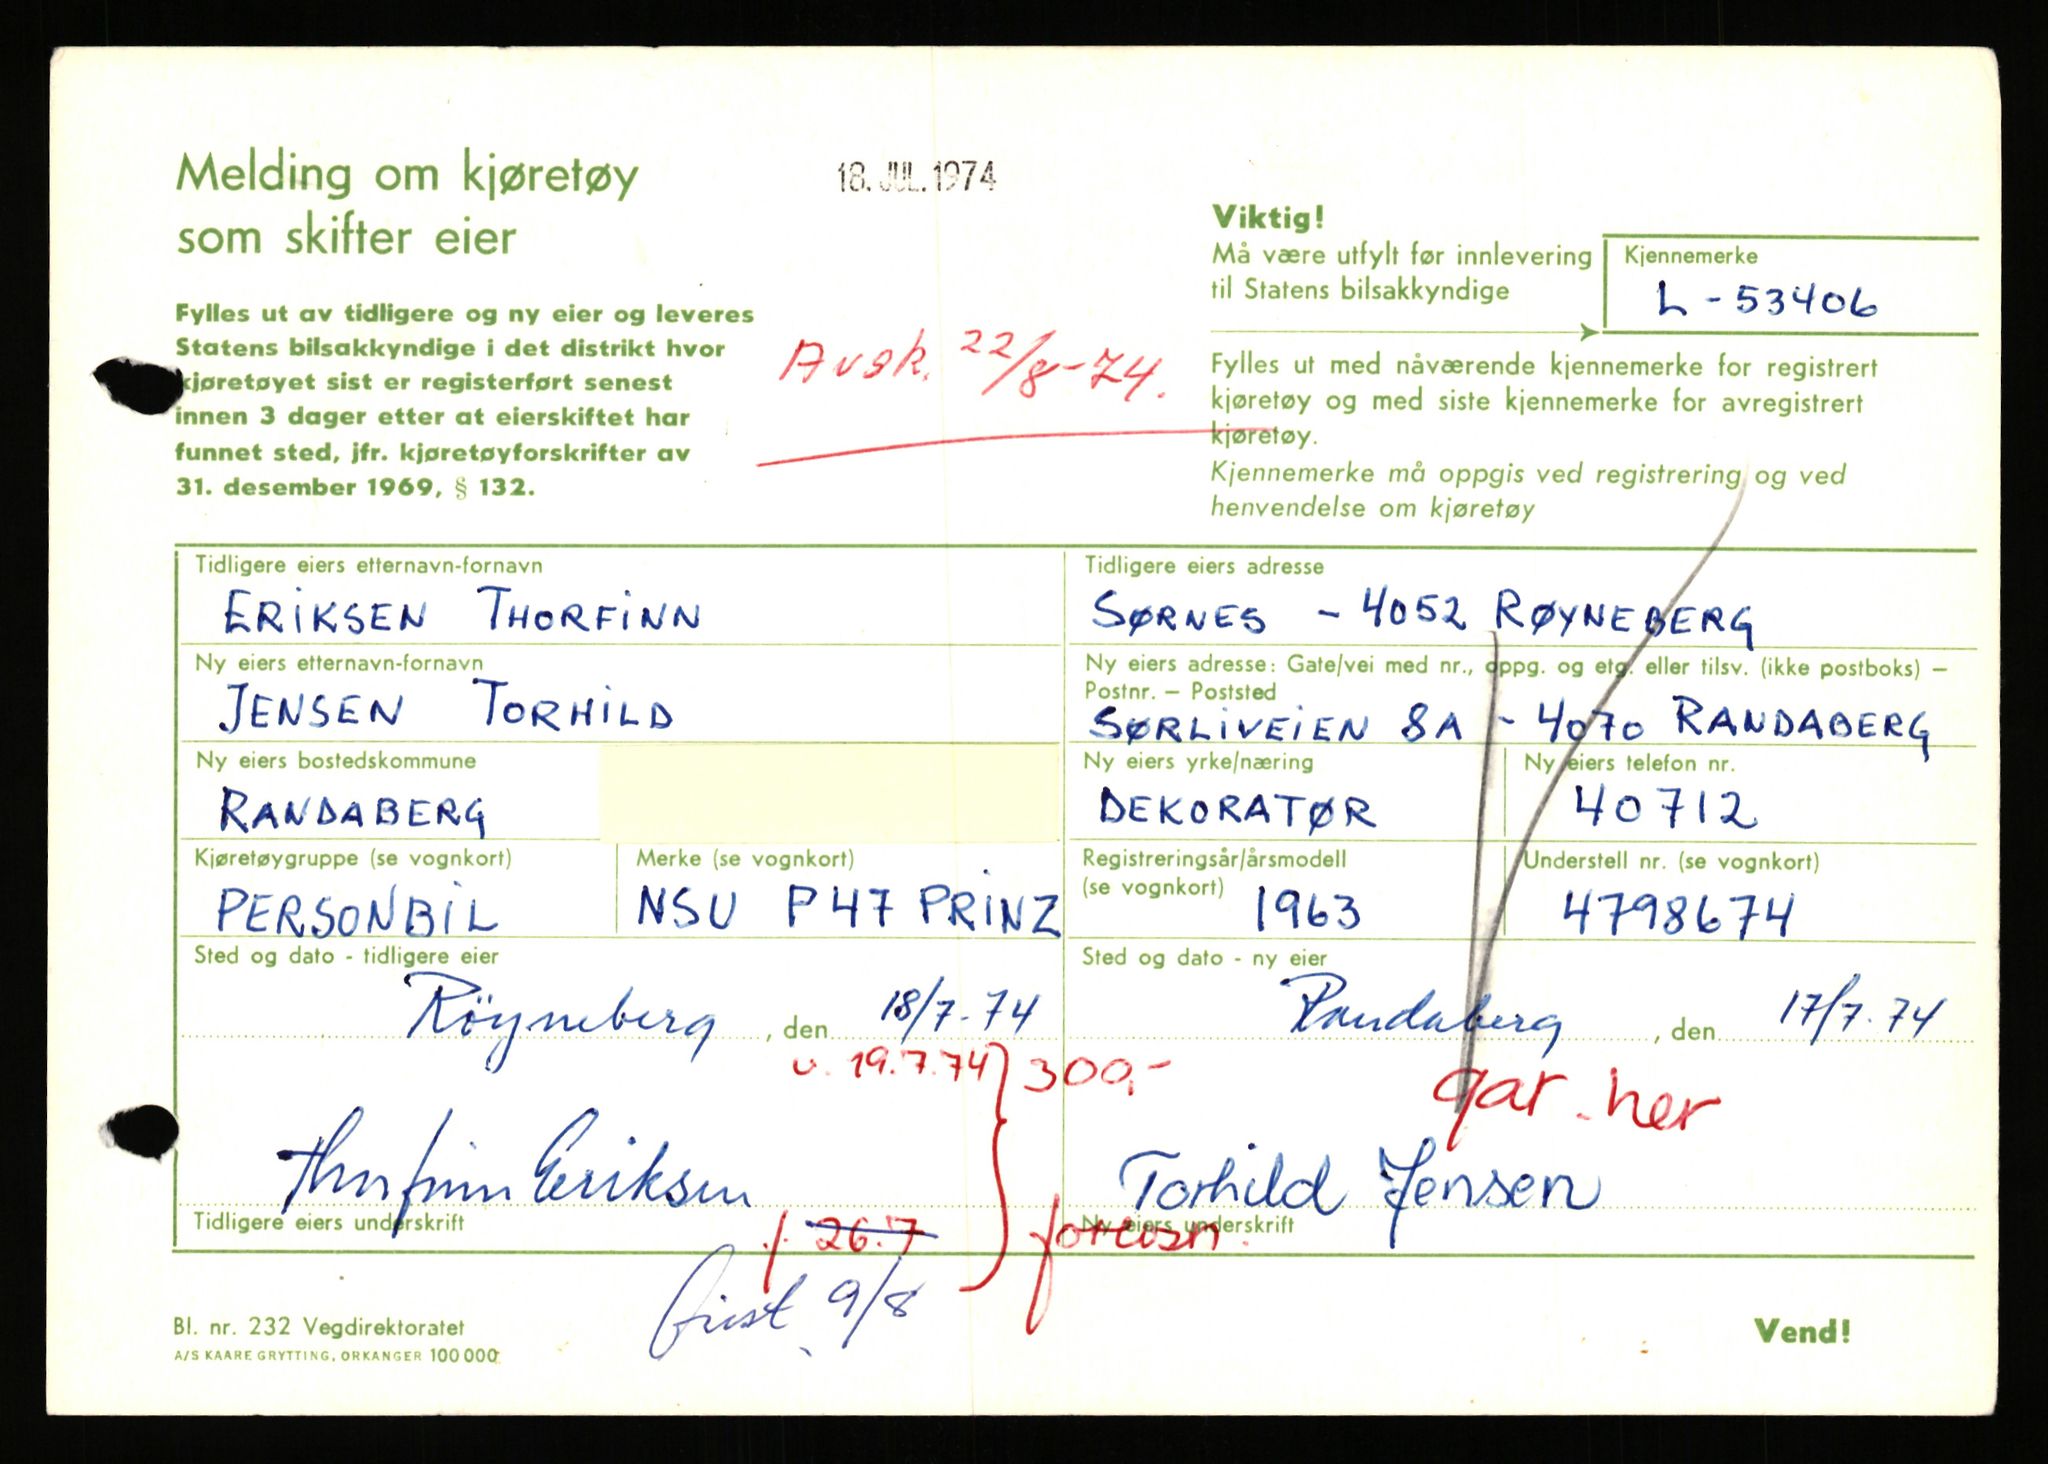 Melding om kjøretøy
som skifter eier
18. JUL. 1974
Fylles ut av tidligere og ny eier og leveres
Statens bilsakkyndige i det distrikt hvor
kjøretøyet sist er registerført senest
innen 3 dager etter at eierskiftet har
funnet sted, jfr. kjøretøyforskrifter av
31. desember 1969, § 132.
Avsk. 22/8-74.
Viktig!
Må være utfylt før innlevering
til Statens bilsakkyndige
Kjennemerke
L-53406
Fylles ut med nåværende kjennemerke for registrert
kjøretøy og med siste kjennemerke for avregistrert
kjøretøy.
Kjennemerke må oppgis ved registrering og ved
henvendelse om kjøretøy
Tidligere eiers etternavn-fornavn
ERIKSEN THORFINN
Tidligere eiers adresse
SØRNES - 4052 RØYNEBERG
Ny eiers etternavn-fornavn
JENSEN TORHILD
Ny eiers adresse: Gate/vei med nr., oppg. og etg. eller tilsv. (ikke postboks) –
Postnr. – Poststed
SØRLIVEIEN 8A - 4070 RANDABERG
Ny eiers bostedskommune
RANDABERG
Ny eiers yrke/næring
DEKORATØR
Ny eiers telefon nr.
40712
Kjøretøygruppe (se vognkort)
PERSONBIL
Merke (se vognkort)
NSU P 47 PRINZ
Registreringsår/årsmodell
(se vognkort)
1963
Understell nr. (se vognkort)
4798674
Sted og dato - tidligere eier
Röyneberg, den 18/7-74
Sted og dato - ny eier
Randaberg, den 17/7.74
u. 19.7.74
300,-
gar. her
Thorfinn Eriksen
Tidligere eiers underskrift
Torhild Jensen
Ny eiers underskrift
26.7
frist 9/8
Bl. nr. 232 Vegdirektoratet
A/S KAARE GRYTTING, ORKANGER 100 000
Vend!